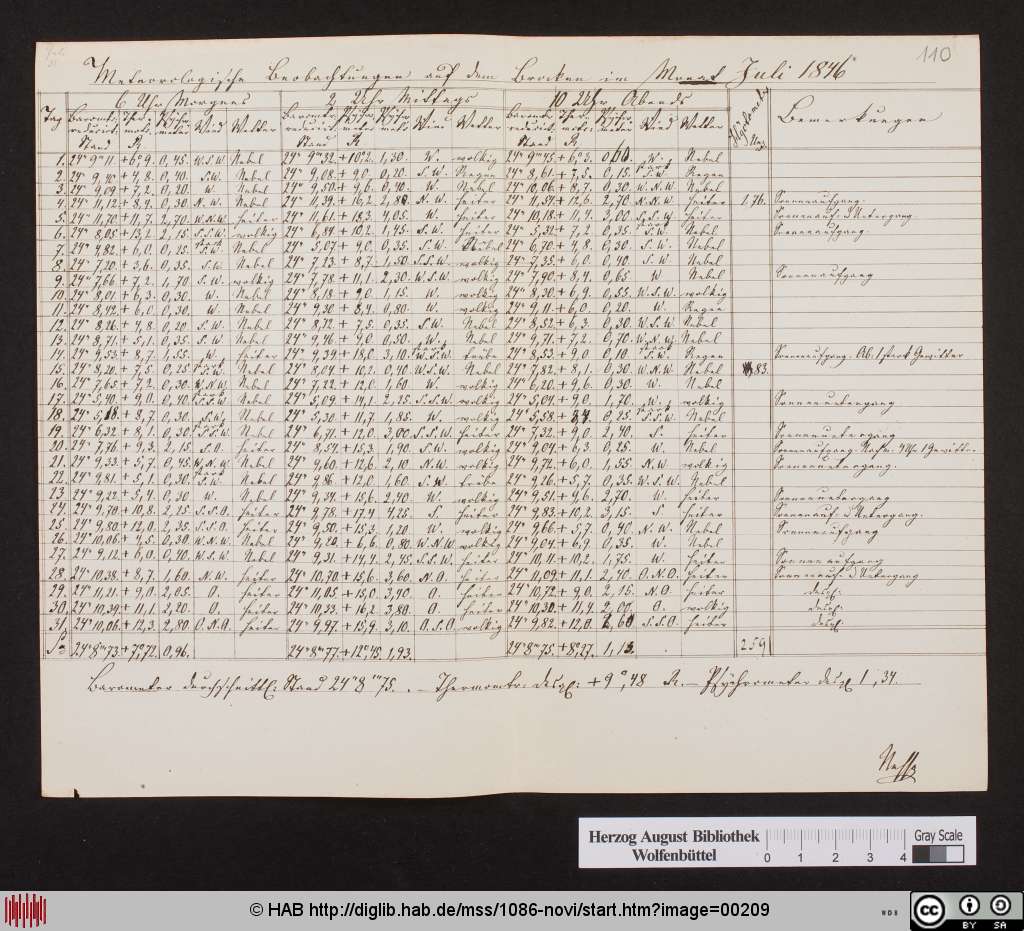 110
Meteorologische Beobachtungen auf dem Brocken im Monat Juli 1846
6 Uhr Morgens 2 Uhr Mittags 10 Uhr Abends
Tag Wind Wetter Wind Wetter Wind Wetter Bemerkungen
Stand R. Stand R. Stand R.
1. 24" 9"'11. +6°,9. 0,45. W.S.W Nebel 24" 9"'32. +10°,2. 1,30. W. wolkig 24" 9"'45. +6°,3. W. Nebel
2. 24" 9,40 +4,8. 0,40. S.W. Nebel 24" 9,08. +9,0. 0,20. S.W. Regen 24" 8,61. +7,5. 0,15. S.W. Regen
3. 24" 9,09 +7,2. 0,20. W. Nebel 24" 9,50. +9,6. 0,40. W. Nebel 24" 10,06. +8,7. 0,30. W.N.W. Nebel
4. 24" 11,12 +8,9. 0,30. N.W. Nebel 24" 11,39. +16,2. N.W. heiter 24" 11,54. +12,6. 2,70. N.W. heiter 1,76. Sonnenaufgang.
5. 24" 11,70 +11,7. 2,70. W.N.W. heiter 24" 11,61. +18,3. 4,05. W. heiter 24" 10,18. +11,4. 3,00. S.S.W. heiter Sonnenauf- & Untergang.
6. 24" 8,05. +13,2. 2,15. S.S.W. wolkig 24" 6,84. +10,2. 1,45. S.W. heiter 24" 5,32. +7,2. 0,35. S.W. Nebel Sonnenaufgang.
7. 24" 4,82. +6,0. 0,25. S.W. Nebel 24" 5,07. +9,0. 0,35. S.W. Nebel 24" 6,70. +4,8. 0,30. S.W. Nebel
8. 24" 7,20. +3,6. 0,35. S.W. Nebel 24" 7,23. +8,7. 1,50. S.S.W. wolkig 24" 7,35. +6,0. 0,40. S.W. Nebel
9. 24" 7,66 +7,2. 1,70. S.W. wolkig 24" 7,78. +11,1. 2,30. W.S.W. wolkig 24" 7,90. +8,4. 0,65. W Nebel Sonnenaufgang
10. 24" 8,01. +6,3. 0,30. W. Nebel 24" 8,18. +9,0. 1,15. W. wolkig 24" 8,30. +6,9. 0,55. W.S.W. wolkig
11. 24" 8,42. +6,0. 0,30. W. Nebel 24" 9,30. +8,4. 0,80. W. wolkig 24" 9,11. +6,0. 0,20. W. Regen
12. 24" 8,26. +4,8. 0,20. S.W. Nebel 24" 8,72. +7,5. 0,35. S.W. Nebel 24" 8,52. +6,3. 0,30. W.S.W. Nebel
13. 24" 8,71. +5,1. 0,35. S.W. Nebel 24" 9,46. +9,0. 0,50. W. Nebel 24" 9,71. +7,2. 0,70. W.N.W. Nebel
14. 24" 9,53. +8,7. 1,55. W. heiter 24" 9,39. +18,0. 3,10. W.S.W. trübe 24" 8,53. +9,0. 0,10 S.W. Regen Sonnenaufgang. Ab. 1 stark Gewitter
15. 24" 8,20. +7,5. 0,25 S.W. Nebel 24" 8,04. +10,2. 0,40. W.S.W. Nebel 24" 7,82. +8,1. 0,30. W.N.W. Nebel 83.
16. 24" 7,65. +7,2. 0,30. W.N.W. Nebel 24" 7,22. +12,0. 1,60. W. wolkig 24" 6,20. +9,6. 0,30. W. Nebel
17. 24" 5,40. +9,0. 0,40. S.S.W. Nebel 24" 5,09. +14,1. 2,25. S.S.W. wolkig 24" 5,04. +9,0. 1,70. W. wolkig Sonnenuntergang
18. +8,7. 0,30. S.W. Nebel 24" 5,30. +11,7. 1,85. W. wolkig 24" 5,58. 0,25. S.S.W. Nebel
19. 24" 6,32. +8,1. 0,30. S.S.W. Nebel 24" 6,71. +12,0. 3,00. S.S.W. heiter 24" 7,32. +9,0. 2,40. S. heiter Sonnenuntergang
20. 24" 7,76. +9,3. 2,15. S.O. heiter 24" 8,54. +15,3. 1,90. S.W. wolkig 24" 9,04. +6,3. 0,25. W. Nebel Sonnenaufgang.
21. 24" 9,33. +5,7. 0,45. W.N.W. Nebel 24" 9,60. +12,6. 2,10. N.W. wolkig 24" 9,72. +6,0. 1,55. N.W wolkig Sonnenuntergang.
22. 24" 9,81. +5,1. 0,30. S.W. Nebel 24" 9,86. +12,0. 1,60. S.W. trübe 24" 9,26. +5,7. 0,35. W.S.W. Nebel
23 24" 9,22. +5,4. 0,30 W. Nebel 24" 9,34. +15,6. 2,40. W. wolkig 24" 9,51. +9,6. 2,70. W. heiter Sonnenuntergang
24. 24" 9,70. +10,8. 2,25 S.S.O. heiter 24" 9,78. +17,4 4,25. S. heiter 24" 9,83. +10,2. 3,15. S heiter Sonnenauf- & Untergang.
25. 24" 9,80. +12,0. 2,35. S.S.O. heiter 24" 9,50. +15,3. 1,20. W. wolkig 24" 9,66. +5,7. 0,40. N.W. Nebel Sonnenaufgang
26. 24" 10,06. +4,5. 0,30. W.N.W. Nebel +6,6. 0,80. W.N.W. wolkig 24" 9,04. +6,9. 0,35. W. Nebel
27. 24" 9,12. +6,0. 0,40. W.S.W. Nebel 24" 9,31. +14,4. 2,45. S.S.W. heiter 24" 10,11. +10,2. 1,75. W. heiter Sonnenaufgang
28. 24" 10,38. +8,7. 1,60. N.W. heiter 24" 10,70. +15,6. 3,60. N.O. heiter 24" 11,09. +11,1. 2,40. O.N.O. heiter Sonnenauf- & Untergang
29. 24" 11,21. +9,0. 2,05. O. heiter 24" 11,05. +15,0. 3,90. O. heiter 24" 10,72. +9,0. 2,15. N.O. heiter desgl:
30. 24" 10,39. +11,1. 2,20. O. heiter 24" 10,33. +16,2. 3,80. O. heiter 24" 10,30. +11,4. 2,00. O. wolkig desgl:
31. 24" 10,06. +12,3. 2,80. O.N.O. heiter 24" 9,97. +15,9. 3,10. O.S.O. wolkig 24" 9,82. +12,0. 2,60 S.S.O. heiter desgl
24" 8"'73. +7°,72. 0,96. 24" 8"'77. +12°,45. 1,93. 24" 8"'75. +8°,27. 1,13. 259
Barometer durchschnittl: Stand 24" 8"'75. — Thermomtr: desgl: +9°,48 R. — Psychrometer desgl 1,34.
Nesse
Herzog August Bibliothek
Wolfenbüttel
0 1 2 3 4
Gray Scale
© HAB http://diglib.hab.de/mss/1086-novi/start.htm?image=00209
WDB
cc BY SA